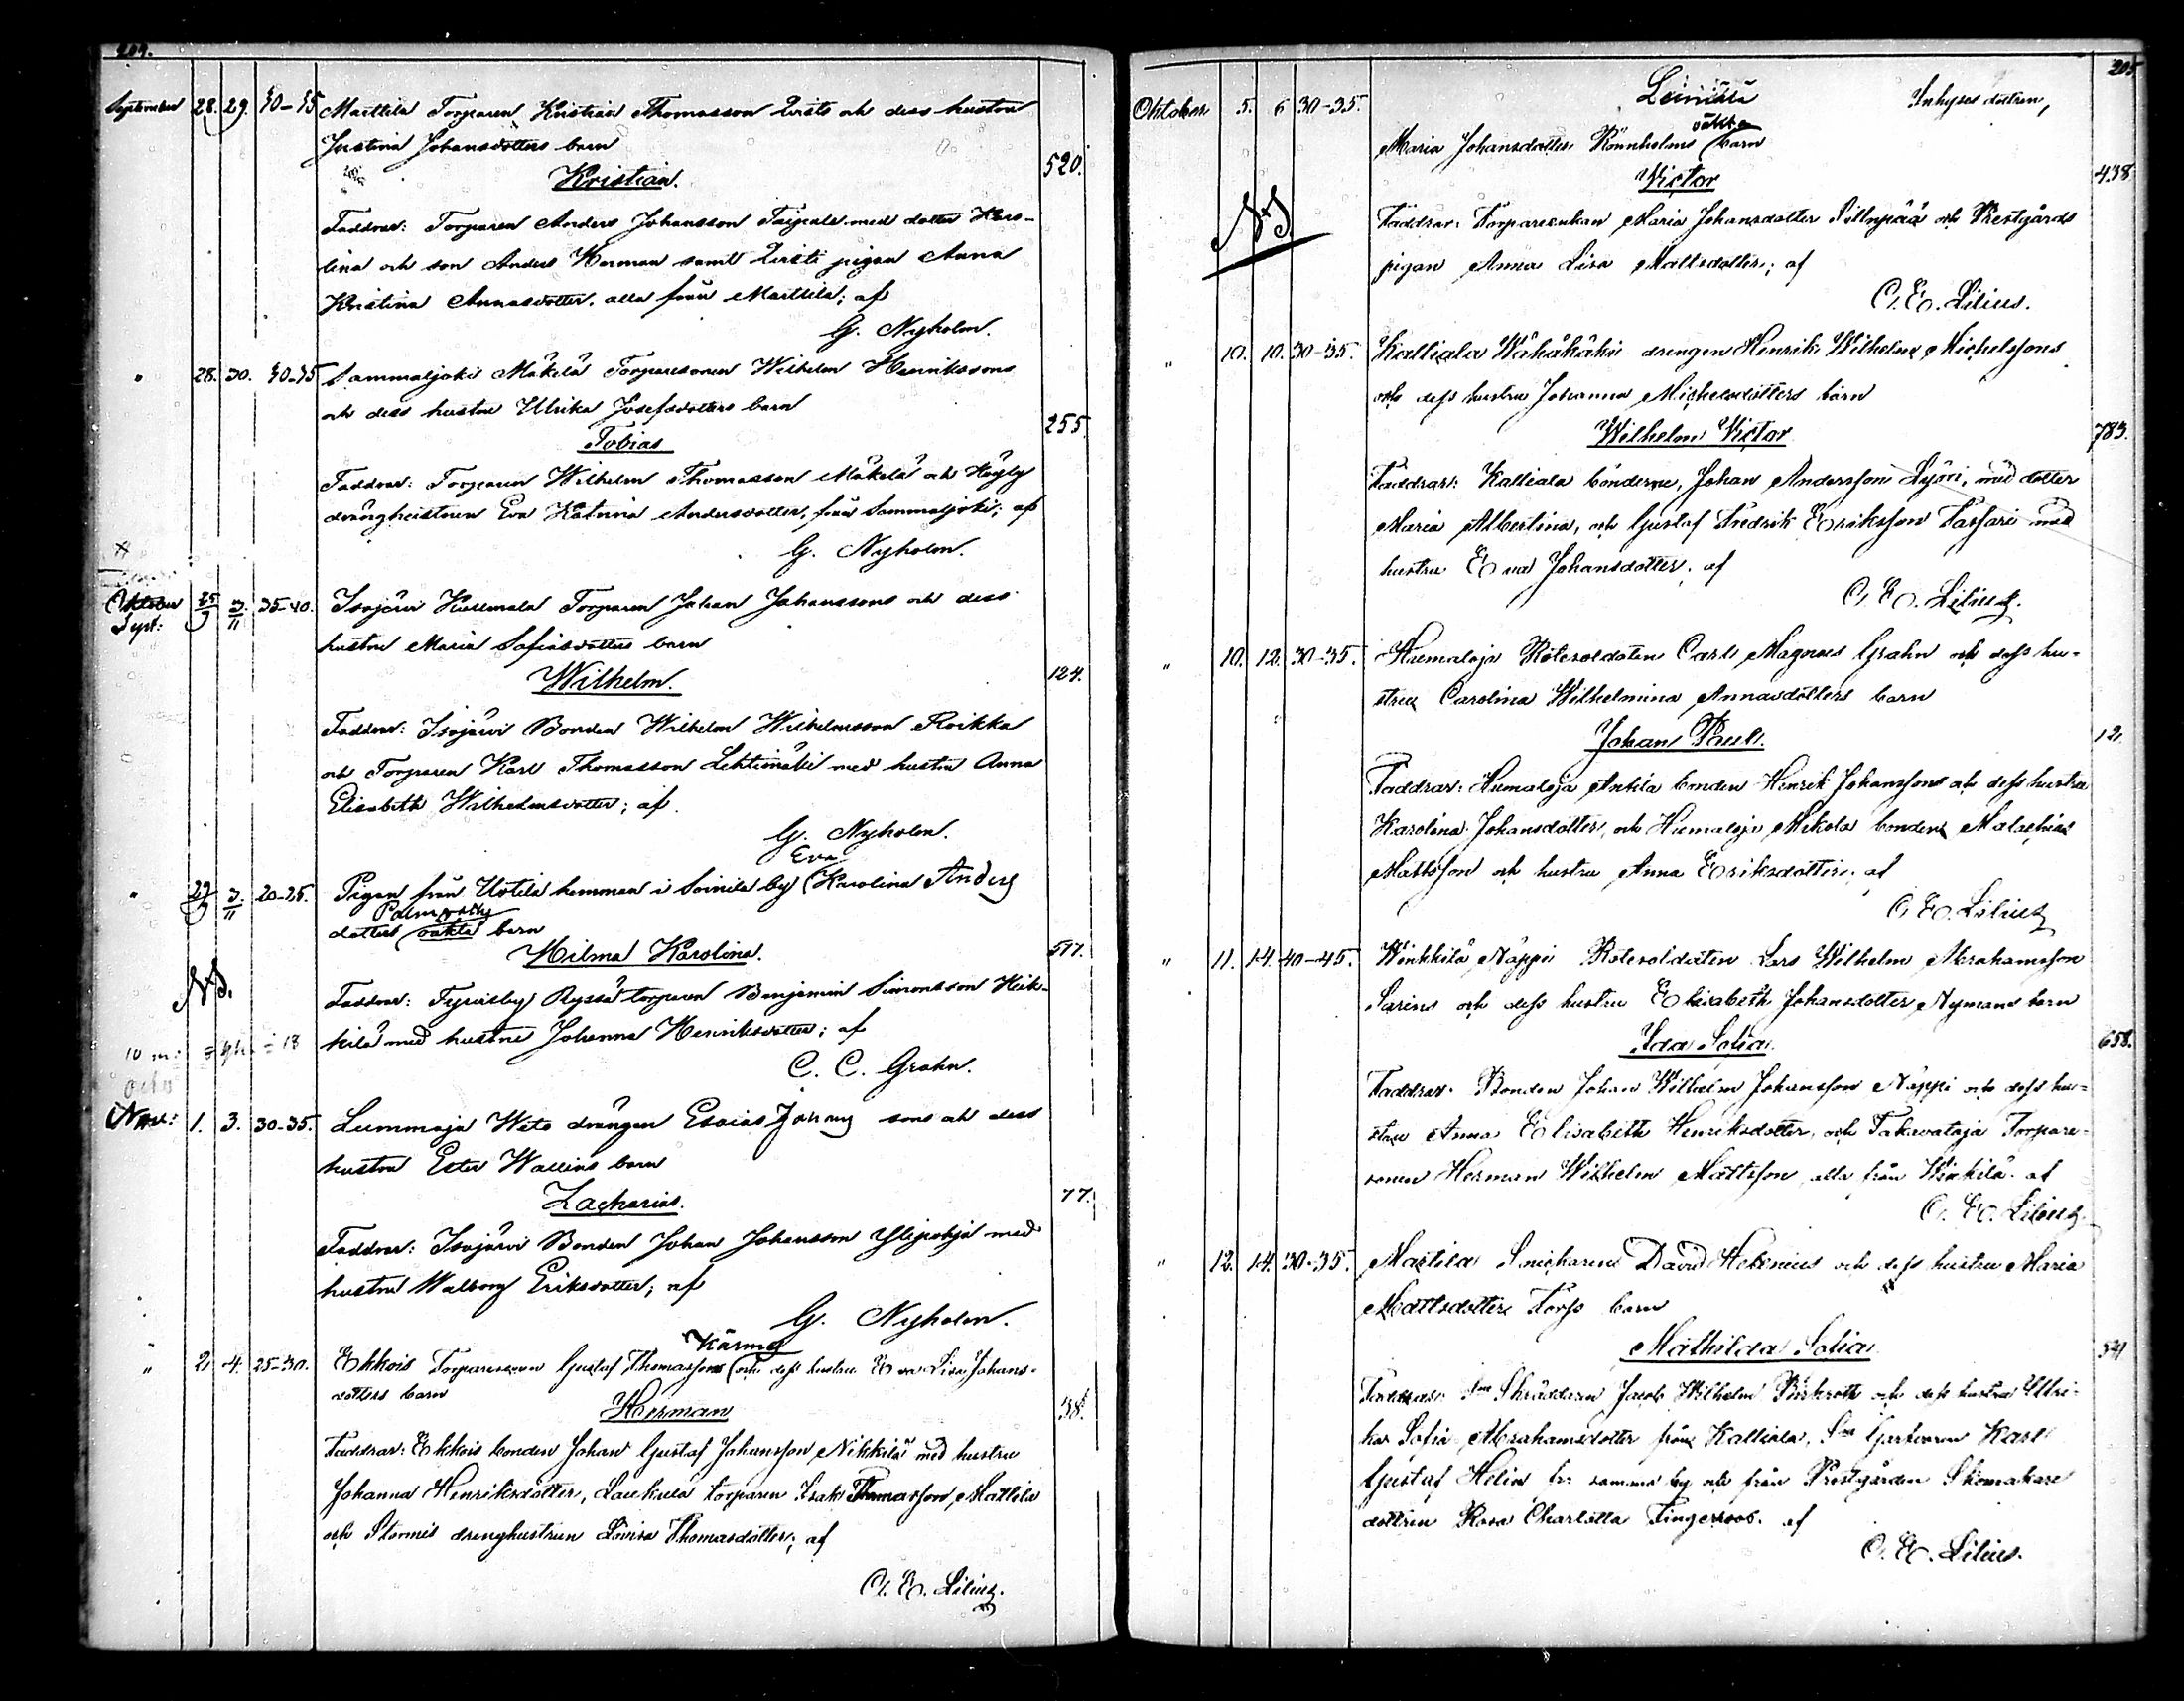 204.
September 28. 29. 40-45 Marttila Torparen Kristian Thomasson Qvists och dess hustru
Justina Johansdotters barn
Kristian. 520.
Faddrar: Torparen Anders Johansson Taipale med dotter Karo-
lina och son Anders Herman samt Qvisti pigan Anna
Kristina Annasdotter, alla från Marttila; af
G. Nyholm.
" 28. 30. 40-45 Sammaljoki Mäkelä Torparesonen Wilhelm Henrikssons
och dess hustru Ulrika Josefsdotters barn
Tobias 255.
Faddrar: Torparen Wilhelm Thomasson Mäkelä och
dränghustrun Eva Katarina Andersdotter, från Sammaljoki; af
G. Nyholm.
Oktober 25/9 3/11 35-40. Isojärvi Torparen Johan Johanssons och dess
Sept:
hustru Maria Sofiasdotters barn
Wilhelm. 124.
Faddrar: Isojärvi Bonden Wilhelm Wilhelmsson Roikka
och Torparen Karl Thomasson med hustru Anna
Elisabeth Wilhelmsdotter; af
G. Nyholm.
Eva
" 29/9 3/11 20-25. Pigan från Uotila hemman i Soinila by Karolina Anders
dotters oäkta barn
Hilma Karolina. 517.
NB.
Faddrar: Tyrvisby Ryssä torparen Benjamin Simonsson Heik-
kilä med hustru Johanna Henriksdotter; af
C. C. Grahn.
Nov: 1. 3. 30-35. Lummaja Weto drängen Esaias Johans sons och dess
hustru Ester Wallins barn
Zacharias. 77.
Faddrar: Isojärvi Bonden Johan Johansson Ylipohja med
hustru Walborg Eriksdotter; af
G. Nyholm.
Kärmä
" 2. 4. 25-30. Ekkois Torparesonen Gustaf Thomassons och dess hustru Eva Lisa Johans-
dotters barn
Herman 38.
Faddrar: Ekkois bonden Johan Gustaf Johansson Nikkilä med hustru
Johanna Henriksdotter, Laukula torparen Isak Thomasson Mattila
och Stormis drenghustrun Lovisa Thomasdotter; af
C. E. Lilius.
205
Oktober 5. 6 30-35. Leiniälä Inhyses dottren,
oäkta
Maria Johansdotter Rönnholms barn
Victor 438
NB
Faddrar: Torpareenkan Maria Johansdotter Sillnpää och Prestgårds
pigan Anna Lisa Mattsdotter; af
C. E. Lilius.
" 10. 10. 30-35. Kalliala Wähäkäkii drengen Henrik Wilhelm Michelssons
och dess hustru Johanna Michelsdotters barn
Wilhelm Victor 783.
Faddrar: Kalliala bönderne, Johan Andersson med dotter
Maria Albertina, och Gustaf Fredrik Eriksson med
hustru Eva Johansdotter. af
C. E. Lilius.
" 10. 12. 30-35. Humaloja Rotesoldaten Carl Magnus Grahn och dess hu-
stru Carolina Wilhelmina Annasdotters barn
Johan Paul. 12.
Faddrar: Humaloja Antila bonden Henrik Johansson och dess hustru
Karolina Johansdotter, och Humaloja Mikola bonden Malachias
Mattsson och hustru Anna Eriksdotter; af
C. E. Lilius
" 11. 14. 40-45. Winkkilä Näppi Rotesoldaten Lars Wilhelm Abrahamsson
Sarins och dess hustru Elisabeth Johansdotter Nymans barn
Ida Sofia. 658.
Faddrar: Bonden Johan Wilhelm Johansson Näppi och dess hu-
stru Anna Elisabeth Henriksdotter, och Takavataja Torpare-
sonen Herman Wilhelm Mattsson alla från Winkilä. af
C. E. Lilius.
" 12. 14. 30-35. Martila Snickaren David Helenius och dess hustru Maria
Mattsdotter Forss barn
Mathilda Sofia 541
Faddrar: Skräddaren Jacob Wilhelm och dess hustru Ulri-
ka Sofia Abrahamsdotter från Kalliala, Garfvaren Karl
Gustaf Helin fr. samma by och från Prestgården Skomakare
dottren Rosa Charlotta Fingerroos. af
C. E. Lilius.